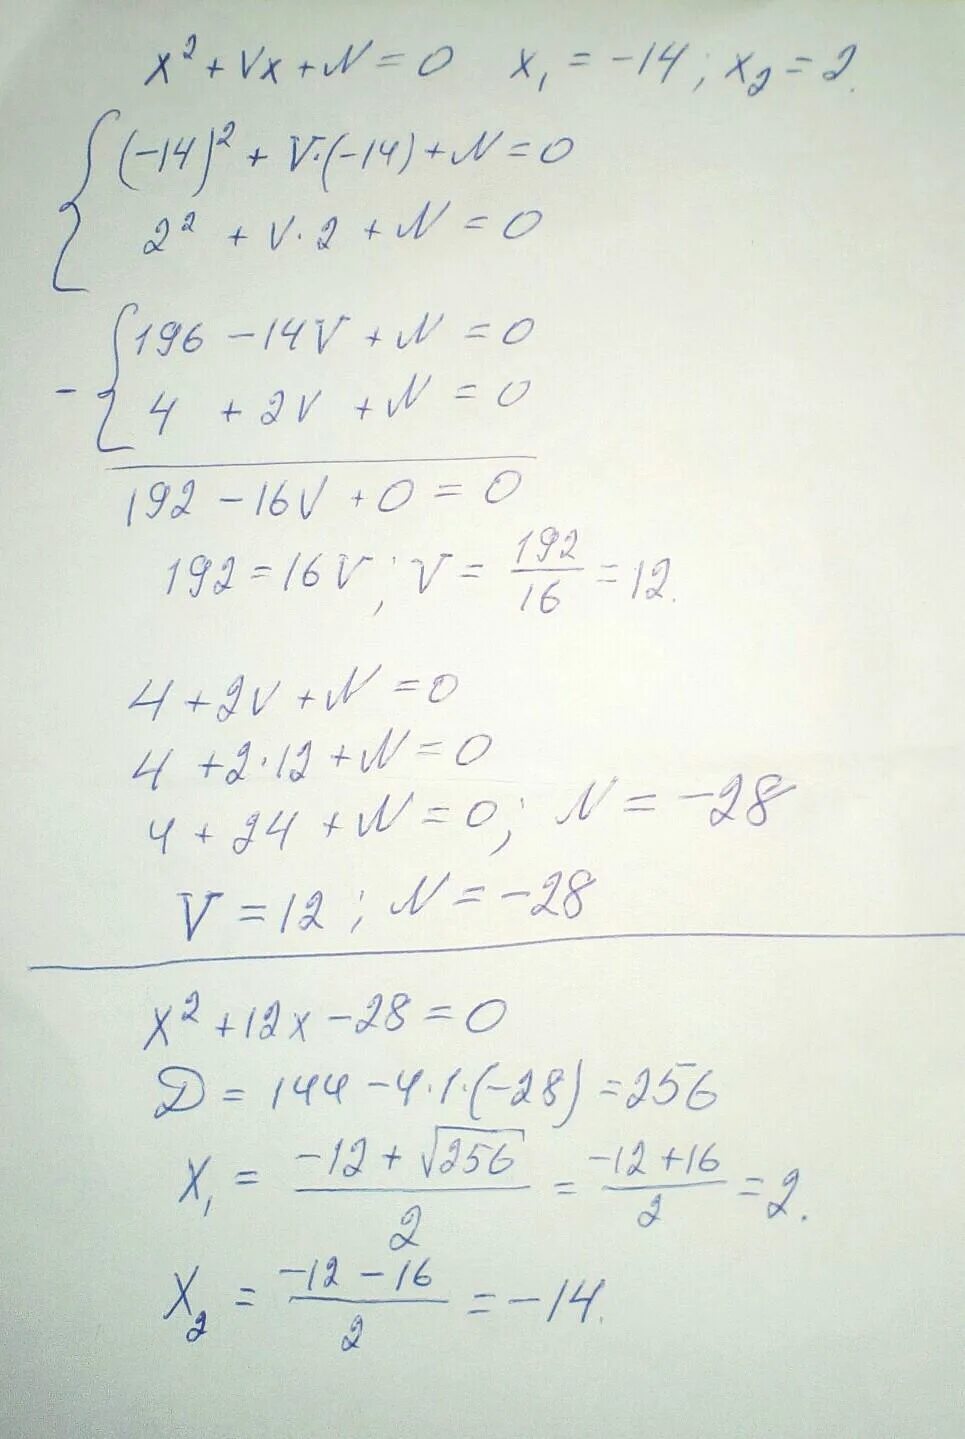 x² + Vx + N = 0   x₁ = -14; x₂ = 2.
(-14)² + V·(-14) + N = 0
2² + V·2 + N = 0
196 - 14V + N = 0
- 4 + 2V + N = 0
192 - 16V + 0 = 0
192 = 16V; V = 192/16 = 12.
4 + 2V + N = 0
4 + 2·12 + N = 0
4 + 24 + N = 0; N = -28
V = 12; N = -28
x² + 12x - 28 = 0
D = 144 - 4·1·(-28) = 256
x₁ = (-12 + √256)/2 = (-12 + 16)/2 = 2.
x₂ = (-12 - 16)/2 = -14.